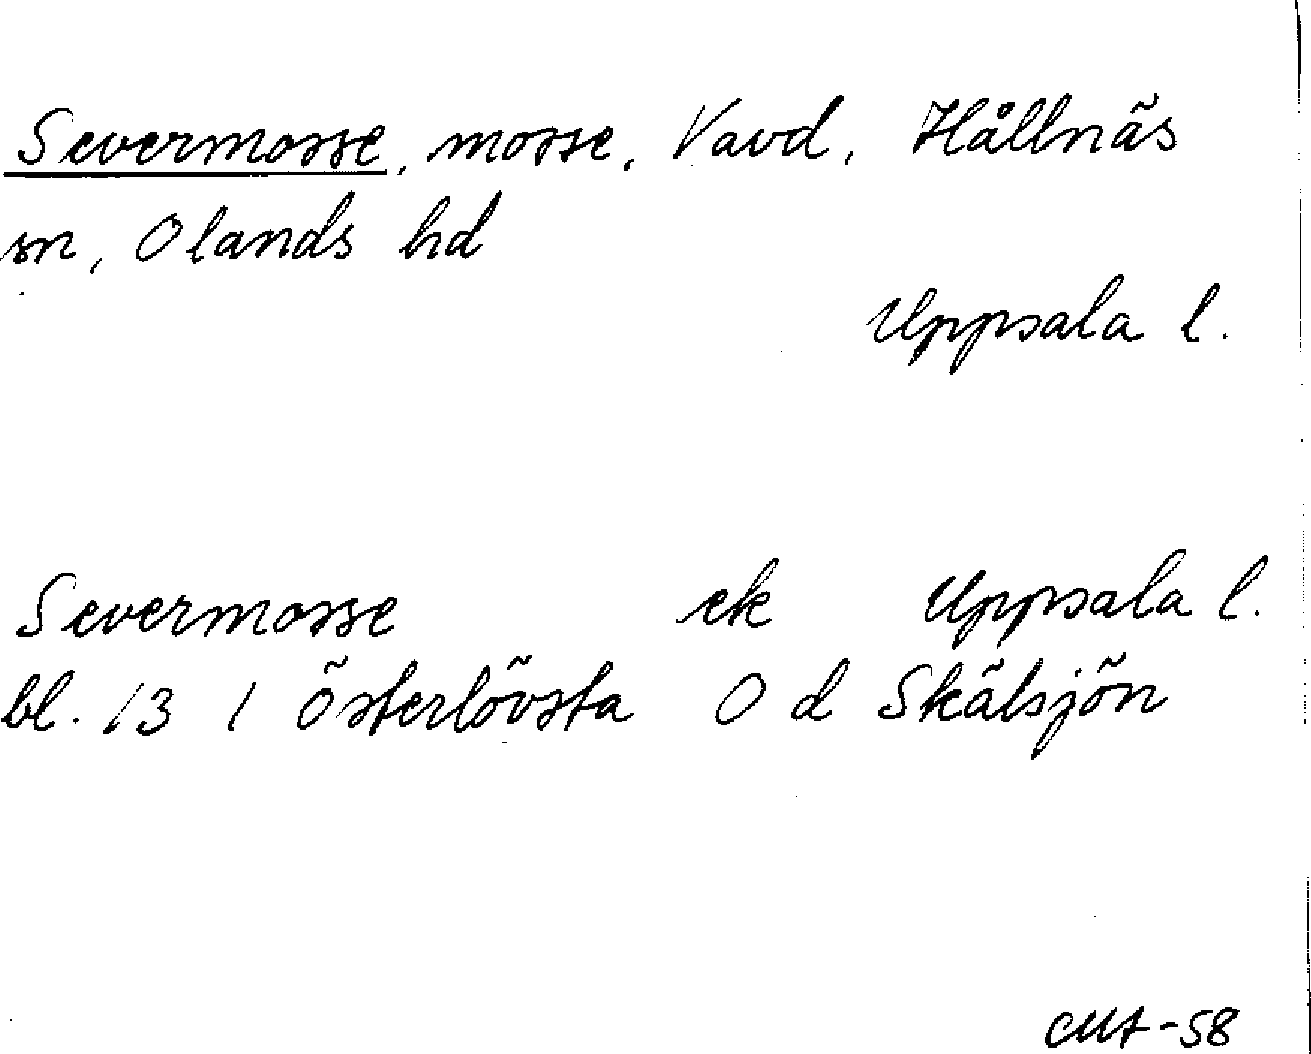 Severmosse, mosse, Vavd, Hållnäs
sn, Olands hd
Uppsala l.
Severmosse ek Uppsala l.
bl. 13 1 Österlövsta O d Skälsjön